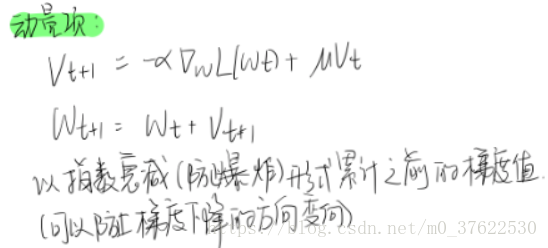 动量项:
Vt+1 = -α∇wL(Wt) + μVt
Wt+1 = Wt + Vt+1
以指数衰减(防爆炸)形式累计之前的梯度值.
(可以防止梯度下降的方向变向)
https://blog.csdn.net/m0_37622530